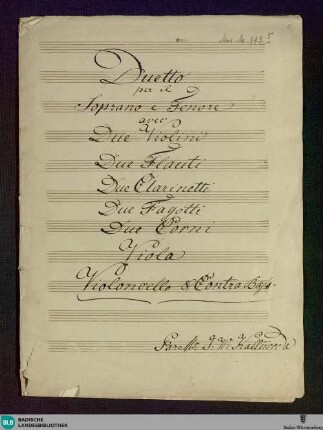 Mus. Hs. 113
Duetto
per il
Soprano e Tenore
avec
Due Violini
Due Flauti
Due Clarinetti
Due Fagotti
Due Corni
Viola
Violoncello & Contra Bass.
BLB BADISCHE
LANDESBIBLIOTHEK
Baden-Württemberg